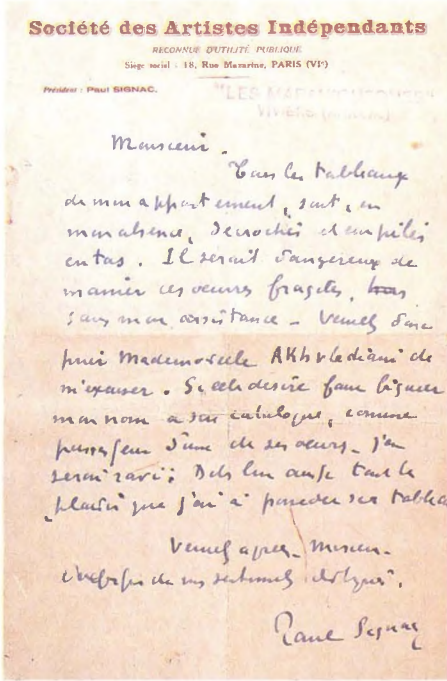 Société des Artistes Indépendants
RECONNUE D'UTILITÉ PUBLIQUE
Siège social : 18, Rue Mazarine, PARIS (VIᵉ)
Président : Paul SIGNAC.
Monsieur.
Tous les tableaux
de mon appartement, sont, en
mon absence, décrochés et empilés
en tas. Il serait dangereux de
manier ces oeuvres fragiles,
sans mon assistance - Veuillez donc
prier Mademoiselle AKhvlediani de
m'excuser. Si elle désire faire figurer
mon nom à son catalogue, comme
possesseur d'une de ses oeuvres - j'en
serai ravi ;
plaisir que j'ai à posséder ses tableaux
Veuillez agréer - Monsieur -
de mes sentiments distingués.
Paul Signac